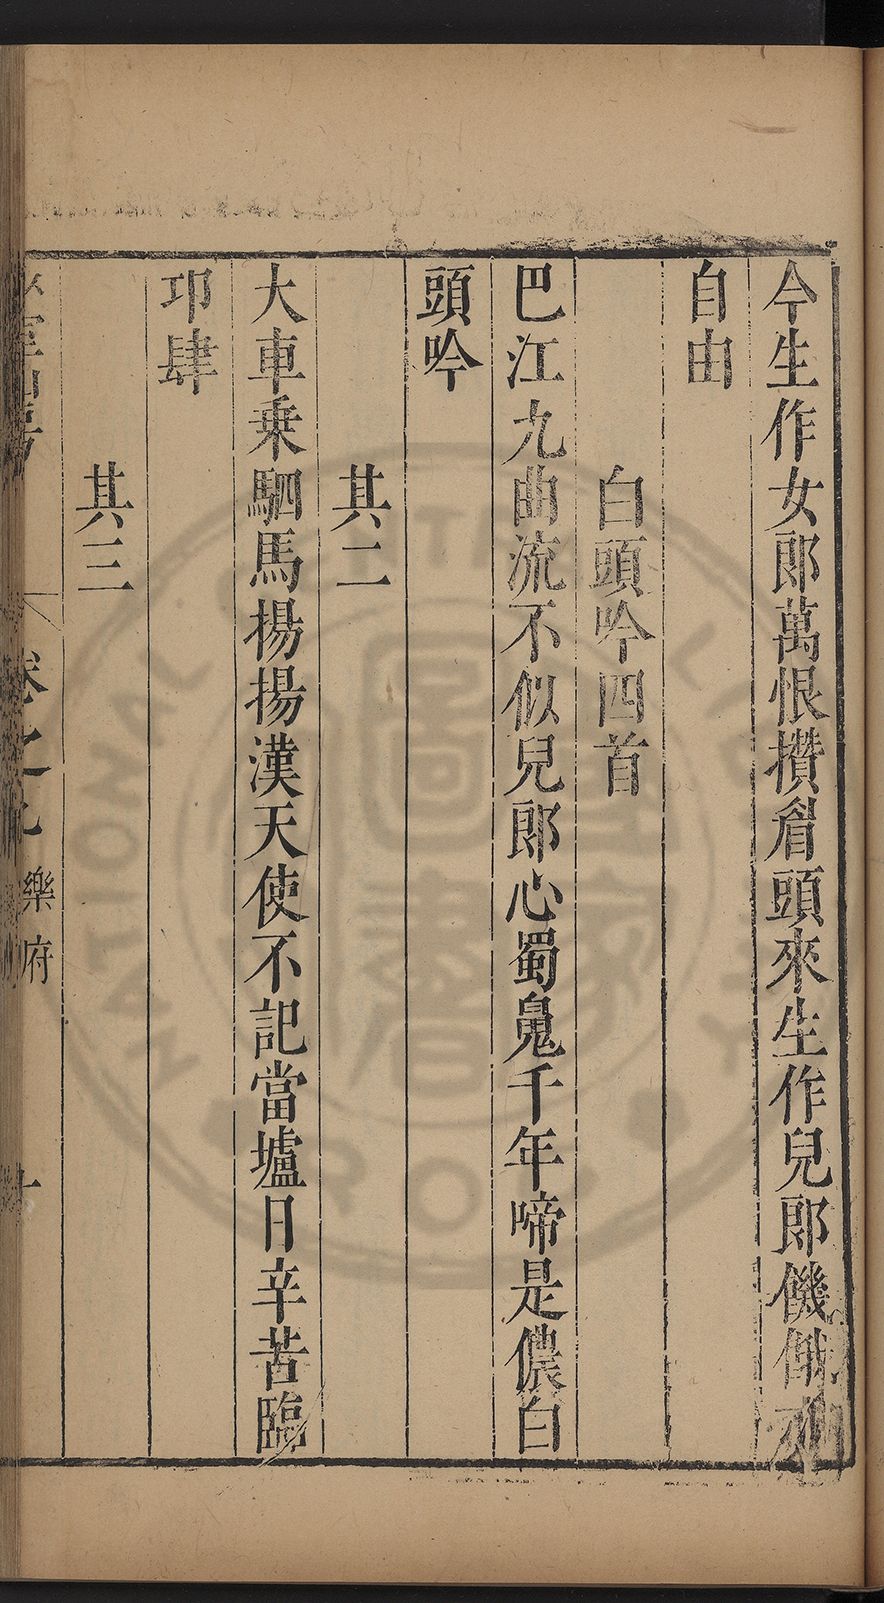 今生作女郎萬恨攢眉頭來生作兒郎饑餓亦
自由
白頭吟四首
巴江九曲流不似兒郎心蜀鳧千年啼是儂白
頭吟
其二
大車乘駟馬揚揚漢天使不記當壚日辛苦臨
邛肆
其三
卷之 樂府 十